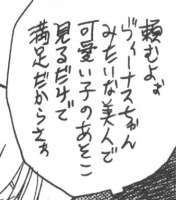 頼むよぉ
ヴィーナスちゃん
みたいな美人で
可愛い子のあそこ
見るだけで
満足だからさぁ